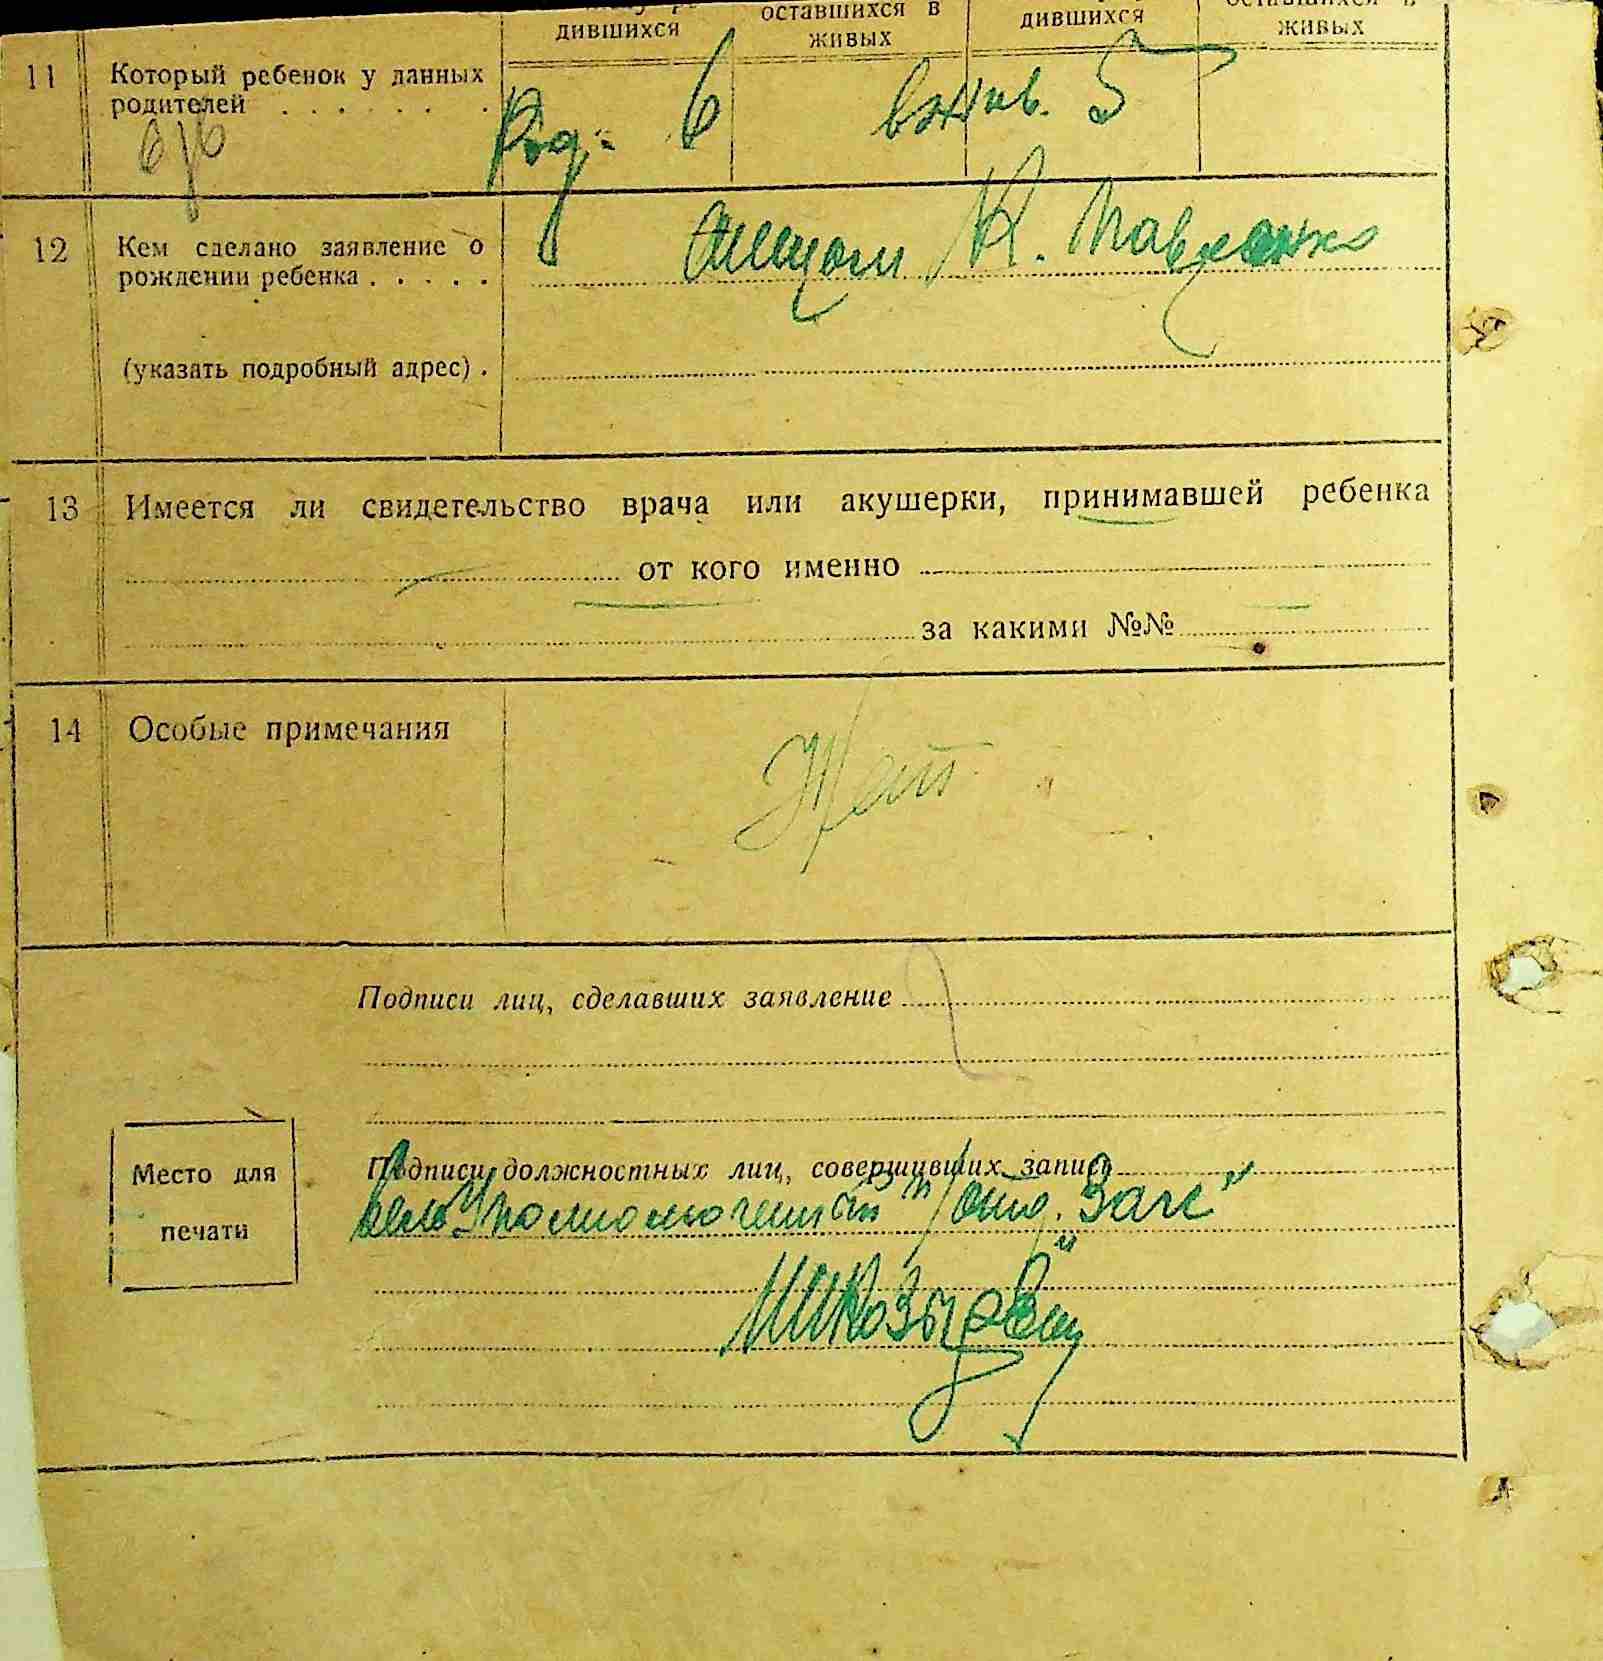 дившихся
оставшихся в
живых
дившихся
живых
11 Который ребенок у данных
родителей . . . . . . .
Род: 6 в жив. 5
6/6
12 Кем сделано заявление о
рождении ребенка . . . . .
отцом К. Павленко
(указать подробный адрес) .
13 Имеется ли свидетельство врача или акушерки, принимавшей ребенка
от кого именно
за какими №№
14 Особые примечания
Нет
Подписи лиц, сделавших заявление
Подписи должностных лиц, совершивших запись
отд. Загс"
Место для
печати